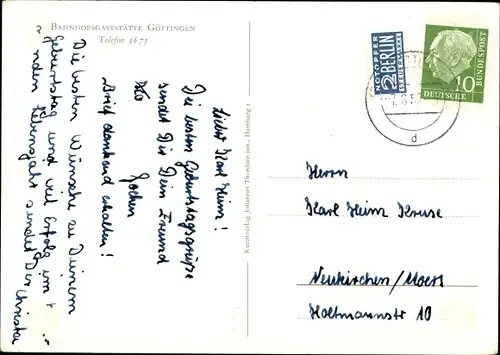 BAHNHOFSGASTSTÄTTE GÖTTINGEN
Telefon 5675
Liebe Karl Heim!
Die besten Geburtstagsgrüße
sendet Dir Dein Freund
Jochen
Brief dankend erhalten!
Die besten Wünsche zu Deinem
Geburtstag und viel Erfolg im
neuen Lebensjahr sendet Dir Christa
Kunstverlag Johannes Thordsen jun., Hamburg 1
NOTOPFER
2 BERLIN
STEUERMARKE
10
DEUTSCHE
BUNDESPOST
d
Herrn
Karl Heim Kruse
Neukirchen/Moers
Holtmannstr 10